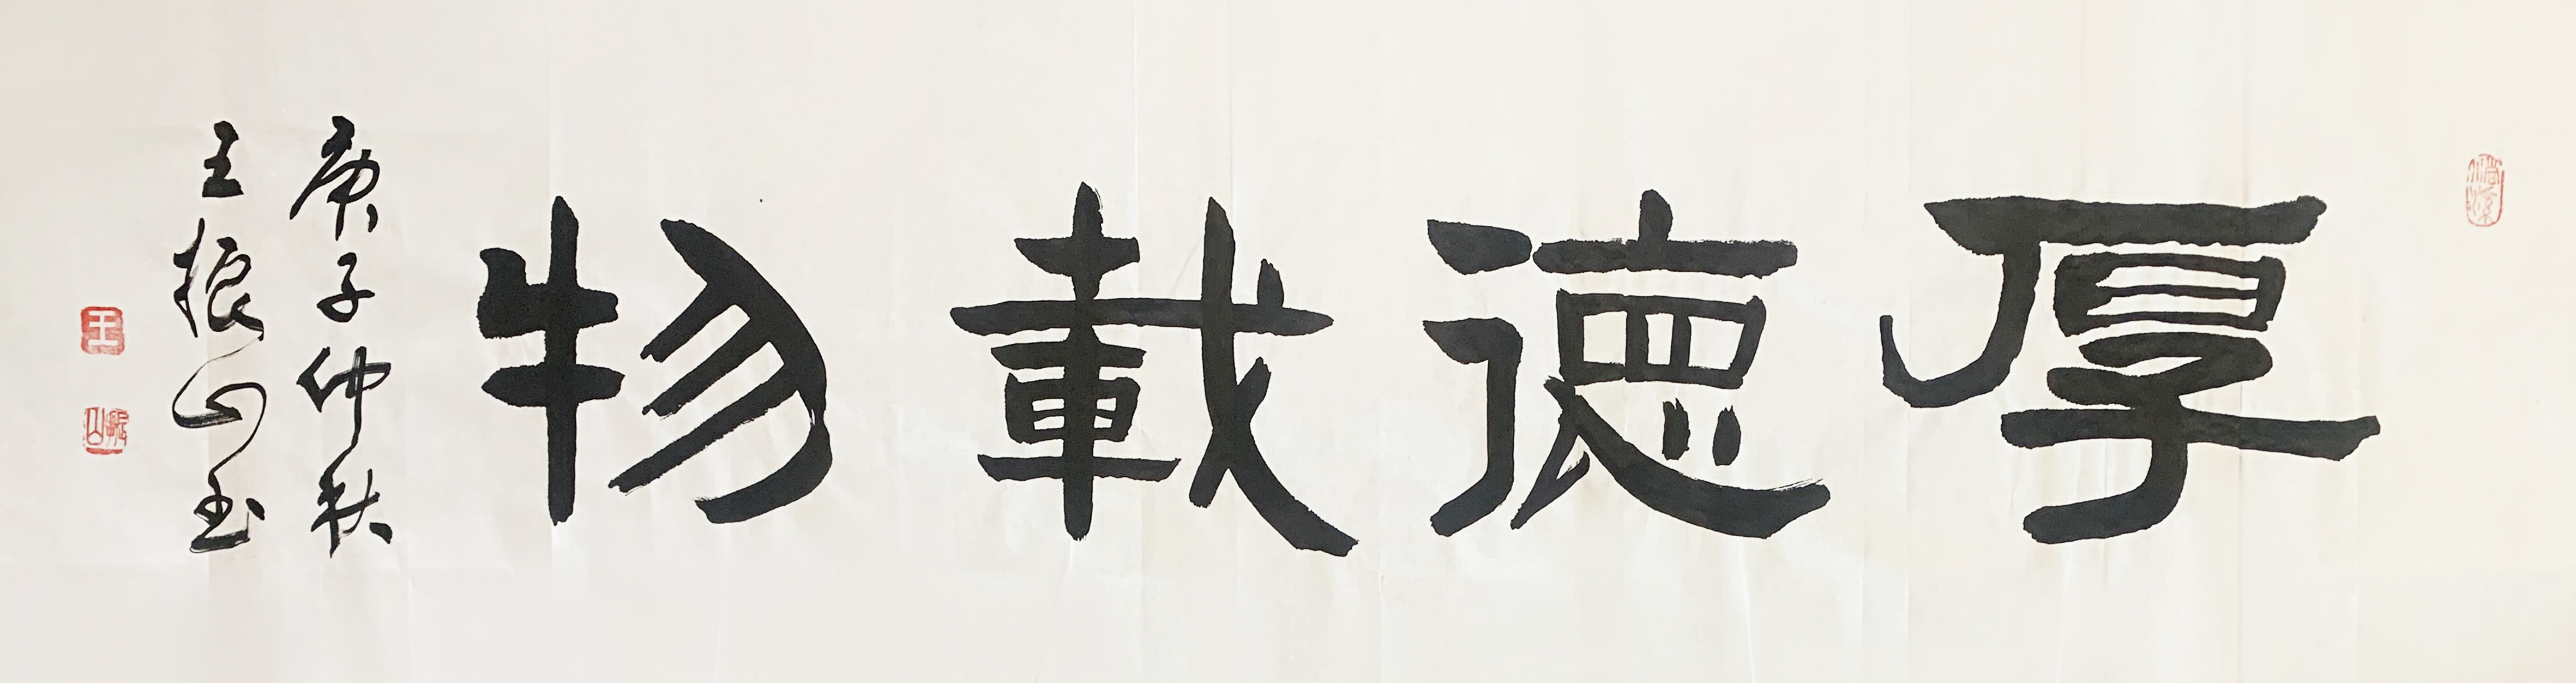 厚德載物
庚子仲秋
王振山書
王
振山